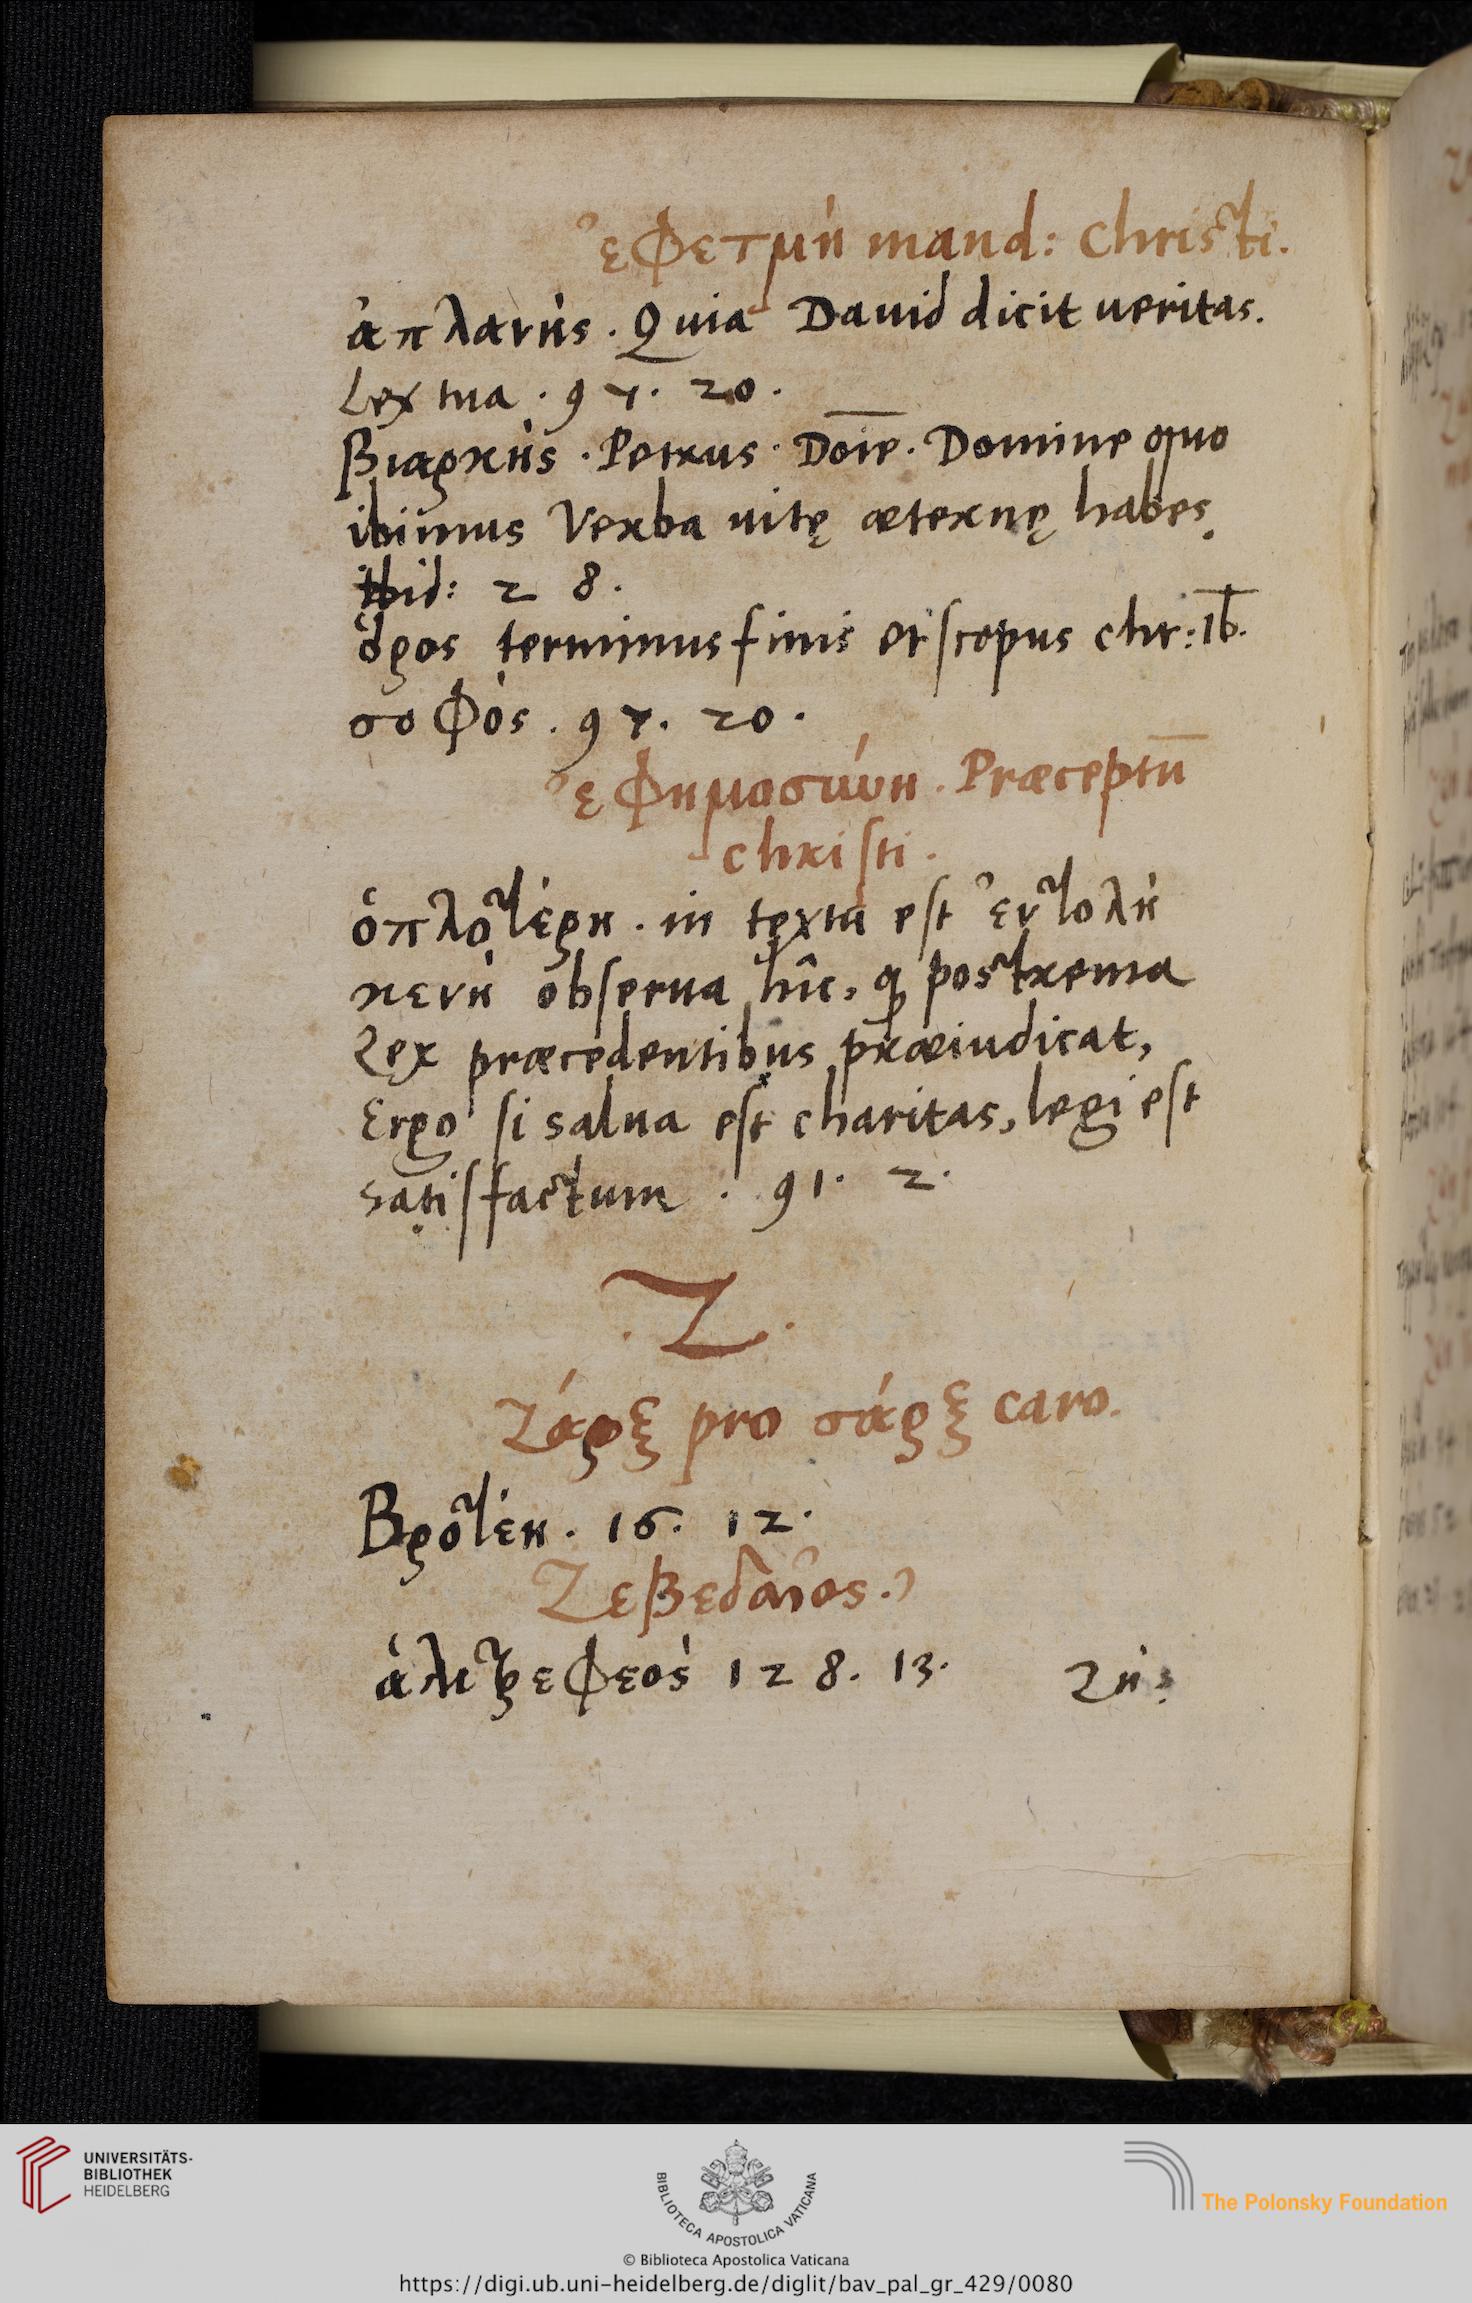 ἐφετμὴ mand: Christi.
ἀπλανὴς. Quia Dauid dicit ueritas.
Lex tua. 97. 20.
Βιαρκὴς. Petrus. Doīe. Domine quo
ibimus Verba uitę æternę habes.
Ibid: 2 8.
ὅρος terminus finis et scopus chr: ib.
σοφός. 97. 20.
ἐφημοσύνη. Præceptū
christi.
ὁπλοτέρη. in textu est ἐντολὴ
observa hîc, postrema
Lex præcedentibus præiudicat,
Ergo si salua est charitas, legi est
satisfactum. 91. 2.
.Z.
Ζάρξ pro σάρξ caro.
Βροτέη. 16. 12.
Ζεβεδαῖος.
ἁλιτρεφεός 128. 13.
UNIVERSITÄTS-
BIBLIOTHEK
HEIDELBERG
BIBLIOTECA APOSTOLICA VATICANA
The Polonsky Foundation
© Biblioteca Apostolica Vaticana
https://digi.ub.uni-heidelberg.de/diglit/bav_pal_gr_429/0080